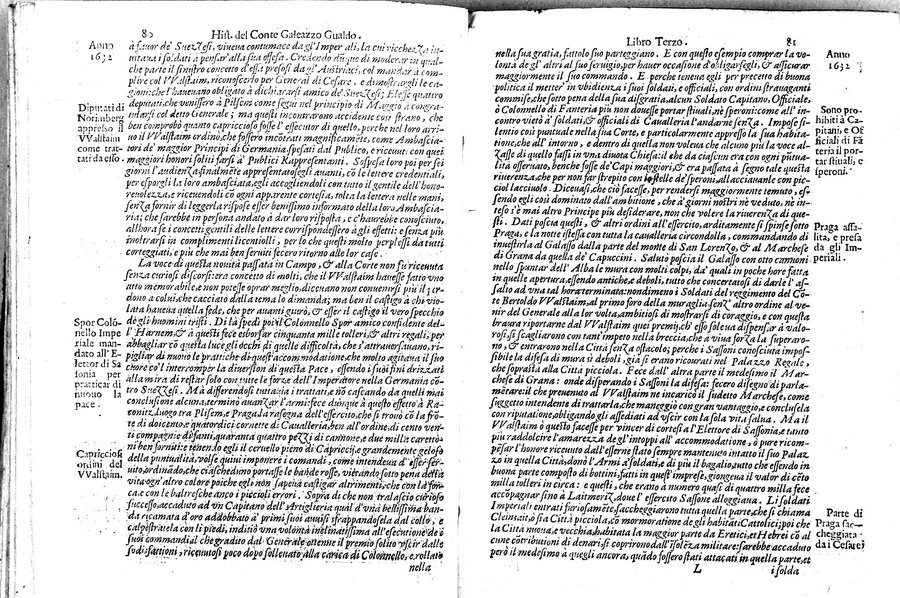 80 Hist. del Conte Galeazzo Gualdo.
Anno
1632
à favor de' Suezzesi, viueua contumace da gl'Imperiali, la cui ricchezza in-
uitaua i soldati a pensar alla sua offesa. Credendo dūque di moderar in qual-
che parte il sinistro concetto d'essi presosi da gl'Austriaci, col mandar à com-
plire col VValstaim, riconoscerlo per General di Cesare, e dimostrargli le ca-
gioni che l'haueuano obligato à dichiararsi amico de' Suezzesi; Elesse quattro
Diputati di
Norimberg
appresso il
VValstaim
come trat-
tati da esso.
deputati, che venissero à Pilsem come seguì nel principio di Maggio à congra-
tularsi col detto Generale; ma questi incontrarono accidente così strano, che
ben comprobò quanto capriccioso fosse l'essecutor di quello, perche nel loro arri-
uo il VValstaim ordinò, che fossero incōtrati magnificamēte, come Ambascia-
tori de' maggior Principi di Germania, spesati dal Publico, e riceuuti con quei
maggiori honori soliti farsi à Publici Rappresentanti. Sospesa loro poi per sei
giorni l'audienza, finalmēte appresentatosegli auanti, cō le lettere credentiali,
per esporgli la loro ambasciata, egli accogliendoli con tutto il gentile dell'hono-
reuolezza, e riceuendoli cō ogni apparente cortesia, tolta la lettera nelle mani,
senza fornir di leggerla rispose esser benissimo informato della loro Ambascia-
ria; che sarebbe in persona andato à dar loro risposta, e c'haurebbe conosciuto,
allhora se i concetti gentili delle lettere corrispondessero à gli effetti: e senza più
inoltrarsi in complimenti licentiolli, per lo che questi molto perplessi da tutti
corteggiati, e più che mai ben seruiti fecero ritorno alle lor case.
La voce di questa nouità passata in Campo, & alla Corte non fù riceuuta
senza curiosi discorsi: era concetto di molti, che il VValstaim hauesse fatto vno
atto memorabile, e non potesse oprar meglio, diceuano non conuenirsi più il per-
dono a colui, che cacciato dalla tema lo dimanda; ma ben il castigo à chi vio-
lata haueua quella fede, che per auanti giurò, & esser il castigo il vero specchio
Spor Coló-
nello Impe
riale man-
dato all'E-
lettor di Sa
sonia per
pratticar di
nuouo la
pace.
de gli huomini tristi. Di là spedì poi il Colonnello Spor amico confidente del-
l'Harnem, & à questi fece esborsar cinquanta mille fiorini, e altri regali, per
abbagliar cō questa luce gli occhi di quelle difficoltà, che s'attrauersauano, ri-
pigliar di nuouo le pratiche di questa accommodatione, che molto agitaua il suo
cuore cō l'interromper la diuersion di questa Pace, essendo i suoi fini drizzati
alla mira di restar solo con tutte le forze dell'Imperatore nella Germania cō-
tro Suezzesi. Mà differendosi tuttauia i trattati, e nō cascando da quelli mai
conclusione alcuna, terminò auanzar l'armi: fece dunque à questo effetto à Ra-
conitz, luogo tra Pilsem, e Praga, la rasegna dell'essercito, che si trouò cō la frō-
te di doicento, e quatordici cornette di Caualleria, ben all'ordine, di cento ven-
ti compagnie di fanti, quaranta quattro pezzi di cannone, e due milla carettoni
ni ben forniti: e tenendo egli il ceruello pieno di Capricci, & grandemente geloso
Capricciosi
ordini del
VValstaim.
della puntualità, volle quiui imponere i comandi, come intendeua d'esser ser-
uito, ordinādo, che ciascheduno portasse le bande rosse, vietando sotto pena della
vita ogn'altro colore poiche egli non sapeua castigar altrimenti, che con la for-
ca e con le baltresche anco i piccioli errori. Sopra di che non tralascio curioso
successo, accaduto ad vn Capitano dell'Artiglieria qual d'vna bellissima ban-
da ricamata d'oro addobbato à primi suoi auuisi strappandosela dal collo, e
calpestratela con li piedi, indiciò vna volontà inclinatissima all'essecutione de i
suoi commandi, che gradito dal Generale ottenne il premio solito vscir dalle
sodisfattioni, riceuutosi poco dopo solleuato alla carica di Colonnello, e rollato
nella
Libro Terzo. 81
Anno
1632
nella sua gratia, fattolo suo parteggiano. E con questo esempio comprar la vo-
lontà de gl'altri al suo seruigio, per hauer occasione d'obligarsegli, & assicurar
maggiormente il suo commando. E perche teneua egli per precetto di buona
politica il metter in vbidienza i suoi soldati, e officiali, con ordini strauaganti
commise, che sotto pena della sua disgratia, alcun Soldato Capitano, Officiale,
Sono pro-
hibiti à Ca-
pitani, e Of
ficiali di Fā
teria il por-
tar stiuali, e
speroni.
ò Colonnello di Fanteria più non douesse portar stiuali, nè speroni: come all'in-
contro vietò a' soldati, & officiali di Caualleria l'andarne senza. Impose si-
lentio così puntuale nella sua Corte, e particolarmente appresso la sua habita-
tione, che all'intorno, e dentro di quella non voleua che alcuno più la voce al-
zasse di quello fassi in vna diuota Chiesa: il che da ciascun era con ogni pūtua-
lità osseruato, benche fosse de' Capi maggiori, & era passata à segno tale questa
riuerenza, che per non far strepito con le stelle de' speroni, allacciauante con pic-
ciol lacciuolo. Diceuasi, che ciò facesse, per rendersi maggiormente temuto, es-
sendo egli così dominato dall'ambitione, che à giorni nostri nè veduto, nè in-
teso s'è mai altro Principe più desiderare, non che volere la riuerenza di que-
sti. Dati poscia questi, & altri ordini all'essercito, arditamente si spinse sotto
Praga assa-
lita, e presa
da gli Im-
periali.
Praga, e la notte istessa con tutta la caualleria circondolla, commandando di
inuestirla al Galasso dalla parte del monte di San Lorenzo, & al Marchese
di Grana da quella de' Capuccini. Salutò poscia il Galasso con otto cannoni
nello spuntar dell'Alba le mura con molti colpi, da' quali in poche hore fatta
in quelle apertura, essendo antiche, e deboli, tutto che concertatosi di darle l'as-
salto ad vna tal hora terminata: nondimeno i Soldati del reggimento del Cō-
te Bertoldo VValstaim, al primo foro della muraglia senz'altro ordine al ve-
nir del Generale alla lor volta, ambitiosi di mostrarsi di coraggio, e con questa
braura riportarne dal VValstaim quei premij, ch'esso soleua dispensar à valo-
rosi, si scagliarono con tant'impeto nella breccia, che a viua forza la superaro-
no, & entrarono nella Città senza ostacolo; perche i Sassoni conosciuta impos-
sibile la difesa di mura sì deboli, già si erano ricourati nel Palazzo Regale,
che soprasta alla Città picciola. Fece dall'altra parte il medesimo il Mar-
chese di Grana: onde disperando i Sassoni la difesa: fecero disegno di parla-
mētare: il che prenunciato al VValstaim ne incaricò il sudetto Marchese, come
suggetto intendente di trattarla, che maneggiò con gran vantaggio, e conclusela
con riputatione, obligando gli assediati ad vscir con la sola vita salua. Ma il
VValstaim non contento di questo per vincer di cortesia l'Elettore di Sassonia, e tanto
più raddolcire l'amarezza de gl'intoppi all'accommodatione, ò pure ricom-
pēsar l'honore riceuuto dall'esserne stato sempre mantenuto intatto il suo Palaz
zo in quella Città, donò l'Armi à Soldati, e di più il bagalio, tutto che essendo in
buona parte composto di bottini, fatti in quest'imprese, giongeua il valor di cēto
milla tolleri in circa: e questi, che erano à numero quasi di quattro milla fece
accōpagnar sino à Laitmeriz, doue l'essercito Sassone alloggiaua. Li soldati
Parte di
Praga sac-
cheggiata
da i Cesarei
Imperiali entrati furiosamēte, saccheggiarono tutta quella parte, che si chiama
Cleinsait, ò sia Città picciola, cō mormoratione degli habitāti Cattolici; poi che
la Città nuoua, e vecchia, habitata la maggior parte da Eretici, et Hebrei cō al
cune contributioni di denari, si copriron dall'insolēza militare: sarebbe accaduto
però il medesimo a quegli ancora, quādo fossero stati attaccati in quella parte, et
L
i solda